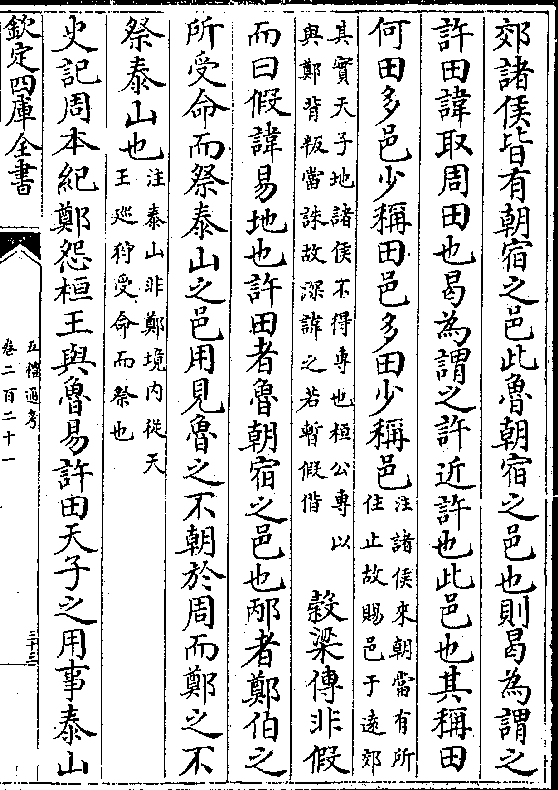 郊諸侯皆有朝宿之邑此魯朝宿之邑也則曷為謂之
許田諱取周田也曷為謂之許近許也此邑也其稱田
何田多邑少稱田邑多田少稱邑注諸侯來朝當有所
住止故賜邑于遠郊
其實天子地諸侯不得專也桓公専以
與鄭背叛當誅故深諱之若暫假借
穀梁傳非假
而曰假諱易地也許田者魯朝宿之邑也邴者鄭伯之
所受命而祭泰山之邑用見魯之不朝於周而鄭之不
祭泰山也注泰山非鄭境内從天
王巡狩受命而祭也
史記周本紀鄭怨桓王與魯易許田天子之用事泰山
欽定四庫全書
五禮通考
卷二百二十一
三十三